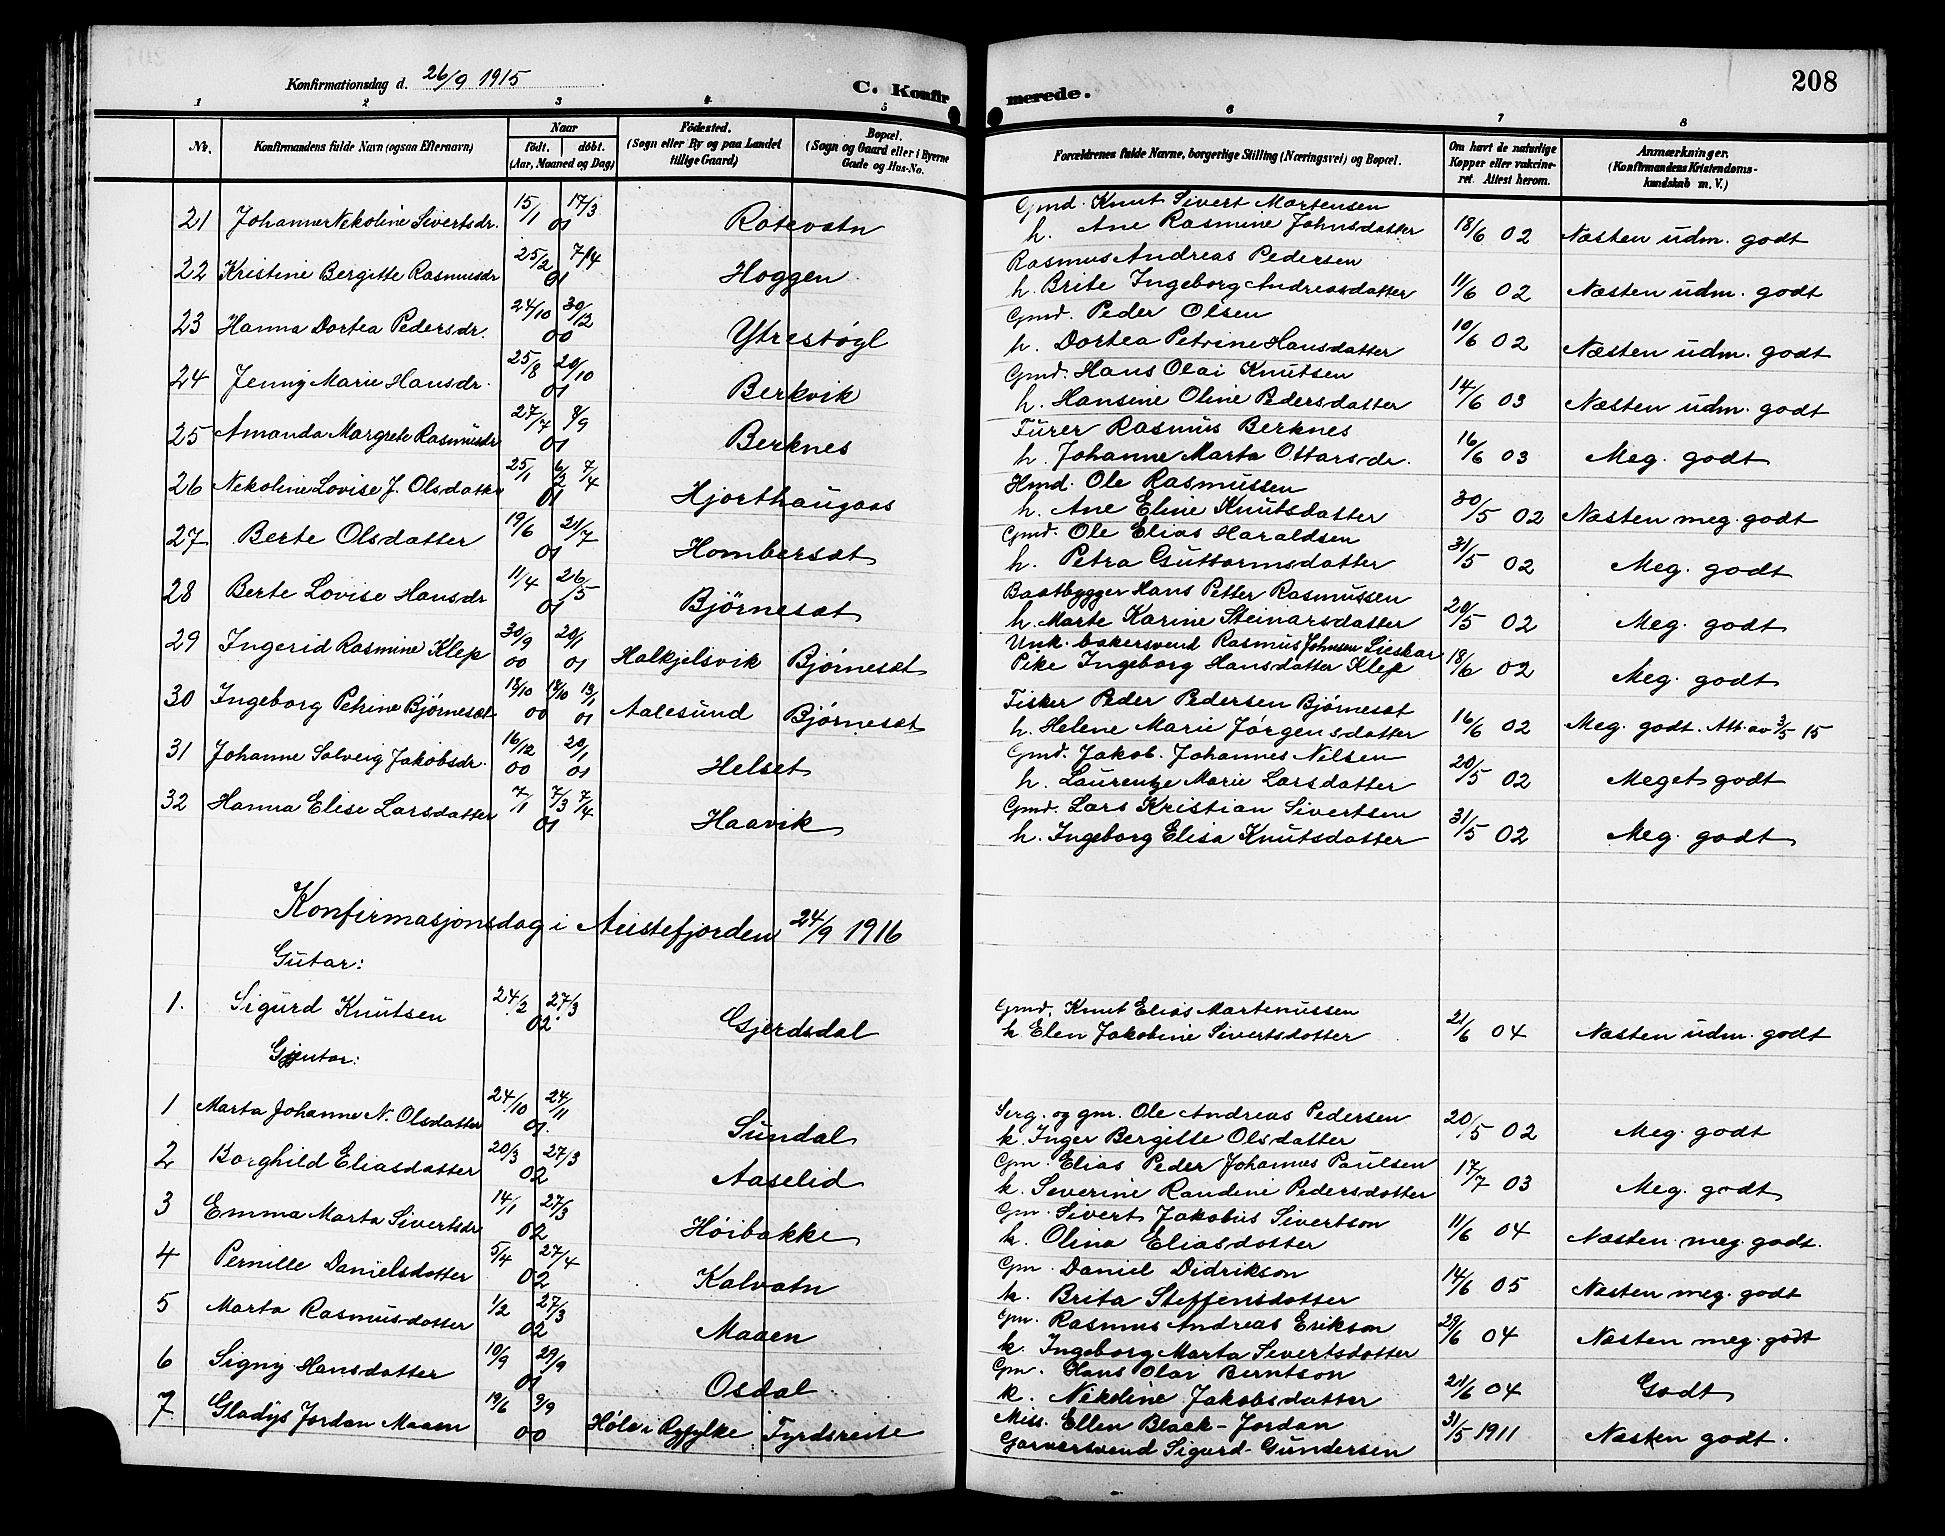 208
Konfirmationsdag d. 26/9 1915
C. Konfirmerede.
1 2 3 4 5 6 7 8
Nr. Konfirmandens fulde Navn (ogsaa Efternavn) Naar født. døbt. (Aar, Maaned og Dag) Fødested. (Sogn eller By og paa Landet tillige Gaard) Bopæl. (Sogn og Gaard eller i Byerne Gade og Hus-No. Forældrenes fulde Navne, borgerlige Stilling (Næringsvei) og Bopæl. Om havt de naturlige Kopper eller vakcineret. Attest herom. Anmærkninger. (Konfirmandens Kristendomskundskab m. V.)
21 Johanne Nekoline Sivertsdr. 15/1 17/3 01 Rotevatn Gmd. Knut Sivert Martensen
h. Ane Rasmine Johnsdatter 18/6 02 Næsten udm. godt
22 Kristine Bergitte Rasmusdr 25/2 7/4 01 Hoggen Rasmus Andreas Pedersen
h. Brite Ingeborg Andreasdatter 11/6 02 Næsten udm. godt
23 Hanna Dortea Pedersdr. 24/10 30/12 00 Ytrestøgl Gmd. Peder Olsen
h. Dortea Petrine Hansdatter 10/6 02 Næsten udm. godt
24 Jenny Marie Hansdr. 25/8 20/10 01 Berkvik Gmd. Hans Olai Knutsen
h. Hansine Oline Pedersdatter 14/6 03 Næsten udm. godt
25 Amanda Margrete Rasmusdr 27/7 8/9 01 Berknes Furer Rasmus Berknes
h. Johanne Marta Ottarsdr. 16/6 03 Meg. godt
26 Nekoline Lovise J. Olsdatter 25/1 6/2 7/4 01 Hjorthaugaas Hmd. Ole Rasmussen
h. Ane Eline Knutsdatter 30/5 02 Næsten meg. godt
27 Berte Olsdatter 19/6 21/7 01 Hombersæt Gmd. Ole Elias Haraldsen
h. Petra Guttormsdatter 31/5 02 Meg. godt
28 Berte Lovise Hansdr 11/4 26/5 01 Bjørnesæt Baatbygger Hans Petter Rasmussen
h. Marte Karine Steinarsdatter 20/5 02 Meg. godt
29 Ingerid Rasmine Klep 30/9 00 20/1 01 Halkjelsvik Bjørnesæt Unk. bakersvend Rasmus Johnsen Lieskar
Pike Ingeborg Hansdatter Klep 18/6 02 Meg. godt
30 Ingeborg Petrine Bjørnesæt 18/10 18/10 00 13/1 01 Aalesund Bjørnesæt Fisker Peder Pedersen Bjørnesæt
h. Helene Marie Jørgensdatter 16/6 02 Meg. godt. Att. av 3/5 15
31 Johanne Solveig Jakobsdr. 16/12 00 20/1 01 Helset Gmd. Jakob Johannes Nilsen
h. Laurentze Marie Larsdatter 20/5 02 Meget godt
32 Hanna Elise Larsdatter 7/1 7/3 7/4 01 Haavik Gmd. Lars Kristian Sivertsen
h. Ingeborg Elisa Knutsdatter 31/5 02 Meg. godt
Konfirmasjonsdag i Austefjorden 24/9 1916
Gutar:
1. Sigurd Knutsen 24/2 27/3 02 Gjerdsdal Gmd. Knut Elias Martenussen
k Elen Jakobine Sivertsdotter 21/6 04 Næsten udm. godt
Gjentor:
1 Marta Johanne N. Olsdatter 24/10 24/11 01. Sundal Serg. og gm. Ole Andreas Pedersen
k. Inger Bergitte Olsdatter 20/5 02 Meg. godt
2 Borghild Eliasdatter 20/3 27/3 02 Aaselid Gm. Elias Peder Johannes Paulsen
k. Severine Randine Pedersdotter 17/7 03 Meg. godt
3 Emma Marta Sivertsdr 14/1 27/3 02 Høibakke Gm. Sivert Jakobus Sivertson
k. Olina Eliasdotter 11/6 04 Næsten meg. godt.
4 Pernille Danielsdotter 5/4 27/4 02 Kalvatn Gm. Daniel Didrikson
k. Brita Steffensdotter 14/6 05 Næsten meg. godt
5 Marta Rasmusdotter 1/2 27/3 02 Maaen Gm. Rasmus Andreas Erikson
k. Ingeborg Marta Severtsdotter 29/6 04 Næsten meg. godt
6 Signy Hansdotter 10/9 29/9 01 Osdal Gm. Hans Olai Berntson
k. Nikoline Jakobsdatter 21/6 04 Godt
7 Gladys Jordan Maaen 19/6 9/9 00 Høle i Ryfylke Fyrdsreite Miss. Ellen Black-Jordan
Garversvend Sigurd Gundersen 31/5 1911 Næsten godt.